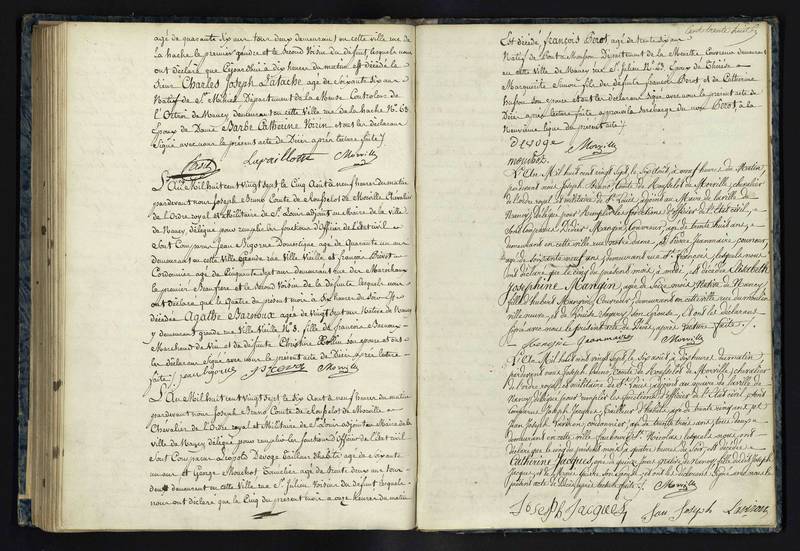 agé de quarante six ans tous deux demeurant en cette ville rue de
la hache le premier gendre et le Second Voisin du défunt, lesquels nous
ont déclaré que Cejourd'hui à dix heures du matin est décédé le
Sieur Charles Joseph Patache agé de soixante dix ans
Natif de St. Mihiel Département de la Meuse Controleur de
l'Octroi de Nancy demeurant en cette Ville rue de la hache No. 63
Epoux de Dame Barbe Catherine Noirin et ont les déclarans
Signé avec nous le présent acte de Décès après lecture faite./.
Lapaillotte Morville
L'An Mil huit cent Vingt sept le Cinq Août à neuf heures du matin
pardevant nous Joseph Bruno Comte de Rousselot de Morville, Chevalier
de l'Ordre royal et Militaire de St. Louis adjoint au Maire de la Ville
de Nancy, délégué pour remplir les fonctions d'Officier de l'état civil
Sont Comparus Jean Bigorne Domestique agé de Quarante un ans
demeurant en cette Ville Grande rue Ville Vieille et françois
Cordonnier agé de Cinquante sept ans demeurant rue des Maréchaux
le premier Beaufrere et le Second Voisin de la défunte lesquels nous
ont déclaré que le Quatre du présent mois à Six heures du Soir est
décédée Agathe agée de vingt sept ans Native de Nancy
y demeurant grande rue Ville Vieille No. 8. fille de françois
Marchand de Vin et de défunte Christine son épouse et ont
les déclarans Signé avec nous le présent acte de Décès après lecture
faite./. jean bigorne Morville
L'An Mil huit cent Vingt sept le Six Aout à neuf heures du matin
pardevant nous Joseph Bruno Comte de Rousselot de Morville
Chevalier de l'Ordre royal et Militaire de St. Louis adjoint au Maire de la
Ville de Nancy délégué pour remplir les fonctions d'Officier de l'état civil
Sont Comparus Léopold Devoge tailleur d'habits agé de soixante
un ans et George Mouchot Tonnelier agé de trente deux ans tous
deux demeurant en cette Ville rue St. Julien Voisins du défunt lesquels
nous ont déclaré que le Cinq du présent mois à onze heures du matin
Est décédé françois Borot agé de trente dix ans
Natif de Pont à Mousson Département de la Meurthe Cordonnier demeurant
en cette Ville de Nancy rue St. Julien No. 43. Epoux de Thérèse
Marguerite Simon fils de défunts françois Borot et de Catherine
husson son épouse et ont les déclarans Signé avec nous le présent acte de
Décès après lecture faite approuvé la surcharge du nom Borot à la
Neuvième ligne du présent acte./.
devoge Morville
L'An Mil huit cent vingt sept, le Six Août, à neuf heures du Matin,
pardevant nous Joseph Bruno, Comte de Rousselot de Morville, chevalier
de l'ordre royal & militaire de St. Louis, adjoint au Maire de la ville de
Nancy, délégué pour remplir les fonctions d'Officier de l'Etat civil,
sont comparus Mangin, Couvreur, agé de trente huit ans,
demeurant en cette ville rue notre dame, et Pierre Jeanmaire, couvreur,
agé de soixante neuf ans, demeurant rue St. François, lesquels nous
ont déclaré que le cinq du présent mois, à midi, est décédée Elisabeth
Josephine Mangin, agée de seize mois, Native de Nancy,
fille d'Hubert Mangin, Couvreur, demeurant en cette ville rue du moulin
ville neuve, et de son épouse, et ont les déclarans
Signé avec nous le présent acte de Décès, après lecture faite./.
Jeanmaire Morville
L'An Mil huit cent vingt sept, le Six Août, à dix heures du matin,
pardevant nous Joseph Bruno, Comte de Rousselot de Morville, chevalier
de l'ordre royal & militaire de St. Louis, adjoint au Maire de la ville de
Nancy, délégué pour remplir les fonctions d'Officier de l'Etat civil, sont
comparus Joseph Jacques, Tailleur d'habits, agé de trente cinq ans, et
Jean Joseph cordonnier, agé de trente trois ans, tous deux
demeurant en cette ville, faubourg St. Nicolas, lesquels nous ont
déclaré que le cinq du présent mois, à quatre heures du soir, est décédée
Catherine Jacques, agée de quinze jours, native de Nancy, fille dudit Joseph
Jacques, et de son épouse, et ont les déclarans Signé avec nous le
présent acte de Décès, après lecture faite./. Morville
Joseph Jacques Jean Joseph